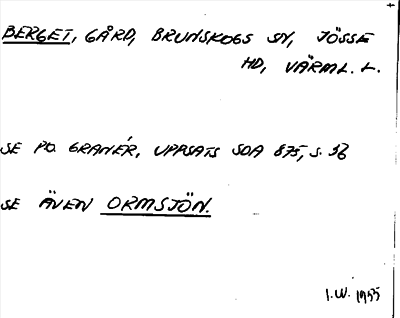 BERGET, GÅRD, BRUNSKOGS SN, JÖSSE
HD, VÄRML. L.
SE P.O. GRANÉR, UPPSATS SOA 875, S. 36
SE ÄVEN ORMSJÖN.
I.W. 1955